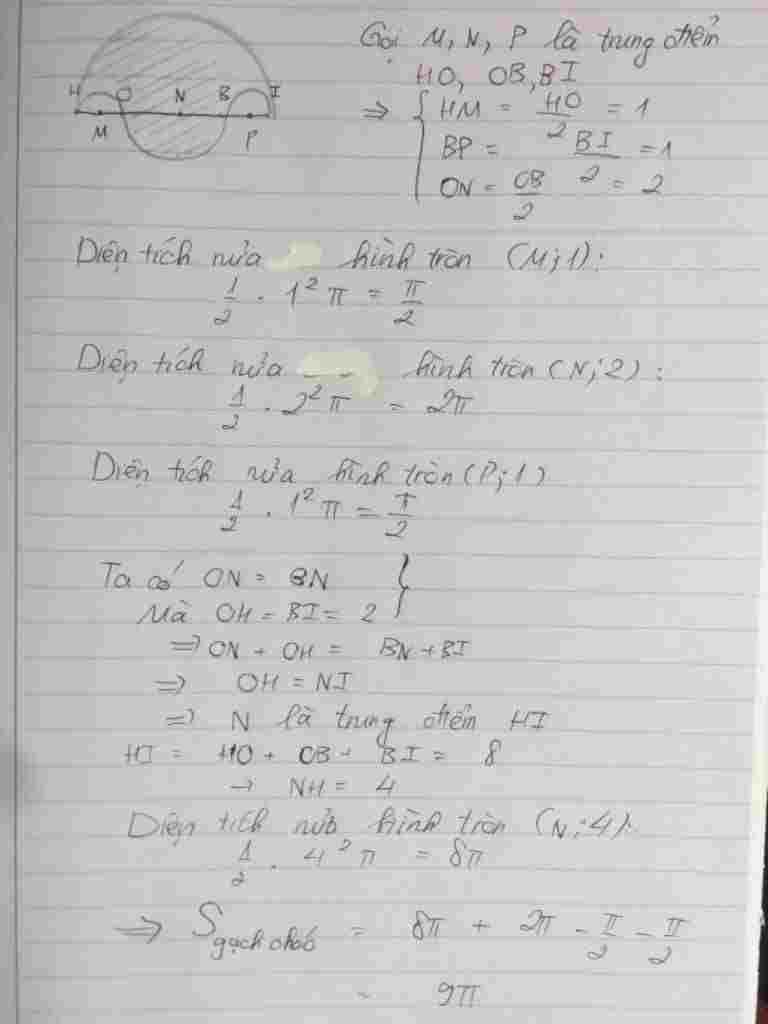 Gọi M, N, P là trung điểm
HO, OB, BI
H O N B I
M P
⇒ { HM = HO/2 = 1
BP = BI/2 = 1
ON = OB/2 = 2
Diện tích nửa hình tròn (M;1):
1/2 . 1² π = π/2
Diện tích nửa hình tròn (N;2):
1/2 . 2² π = 2π
Diện tích nửa hình tròn (P;1)
1/2 . 1² π = π/2
Ta có ON = BN }
Mà OH = BI = 2
⇒ ON + OH = BN + BI
⇒ OH = NI
⇒ N là trung điểm HI
HI = HO + OB + BI = 8
→ NH = 4
Diện tích nửa hình tròn (N;4):
1/2 . 4² π = 8π
⇒ S gạch chéo = 8π + 2π - π/2 - π/2
= 9π